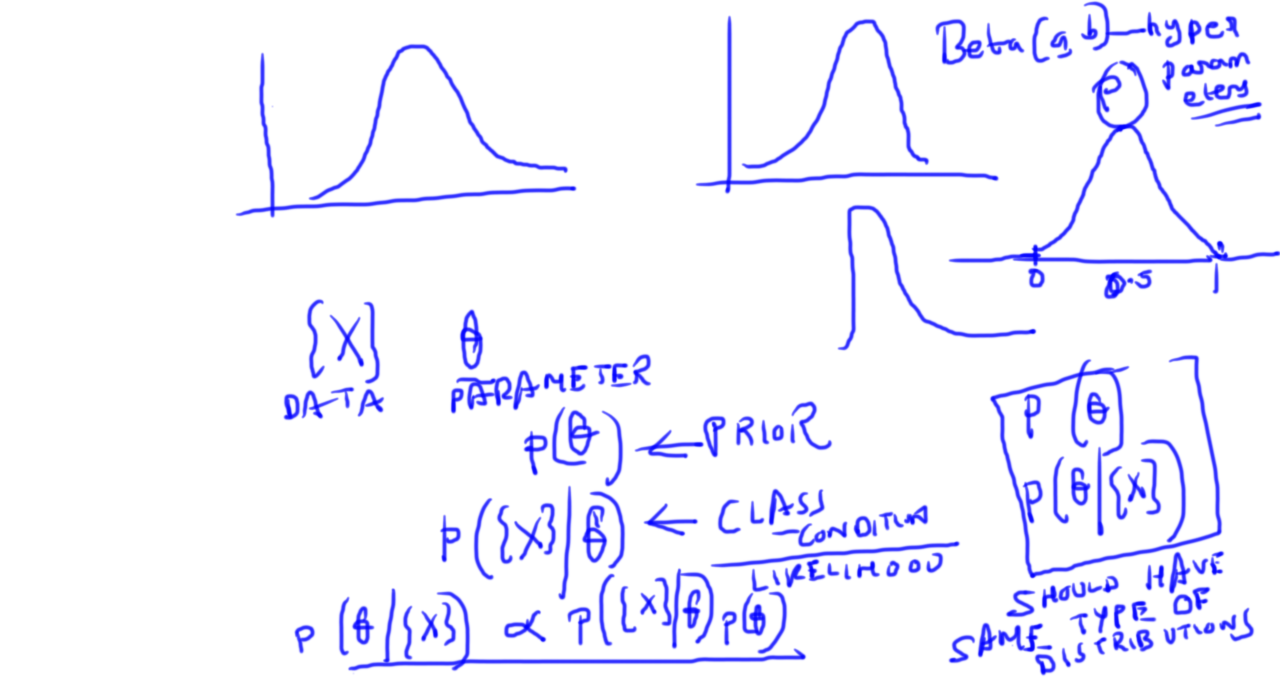 Beta(a, b)—hyper
param
eters
P
0 0.5 1
{X} θ
DATA PARAMETER
p(θ) ← PRIOR
p({X}|θ) ← CLASS
CONDITION
LIKELIHOOD
p(θ|{X}) ∝ p({X}|θ) p(θ)
p(θ)
p(θ|{X})
SHOULD HAVE
SAME TYPE OF
DISTRIBUTIONS